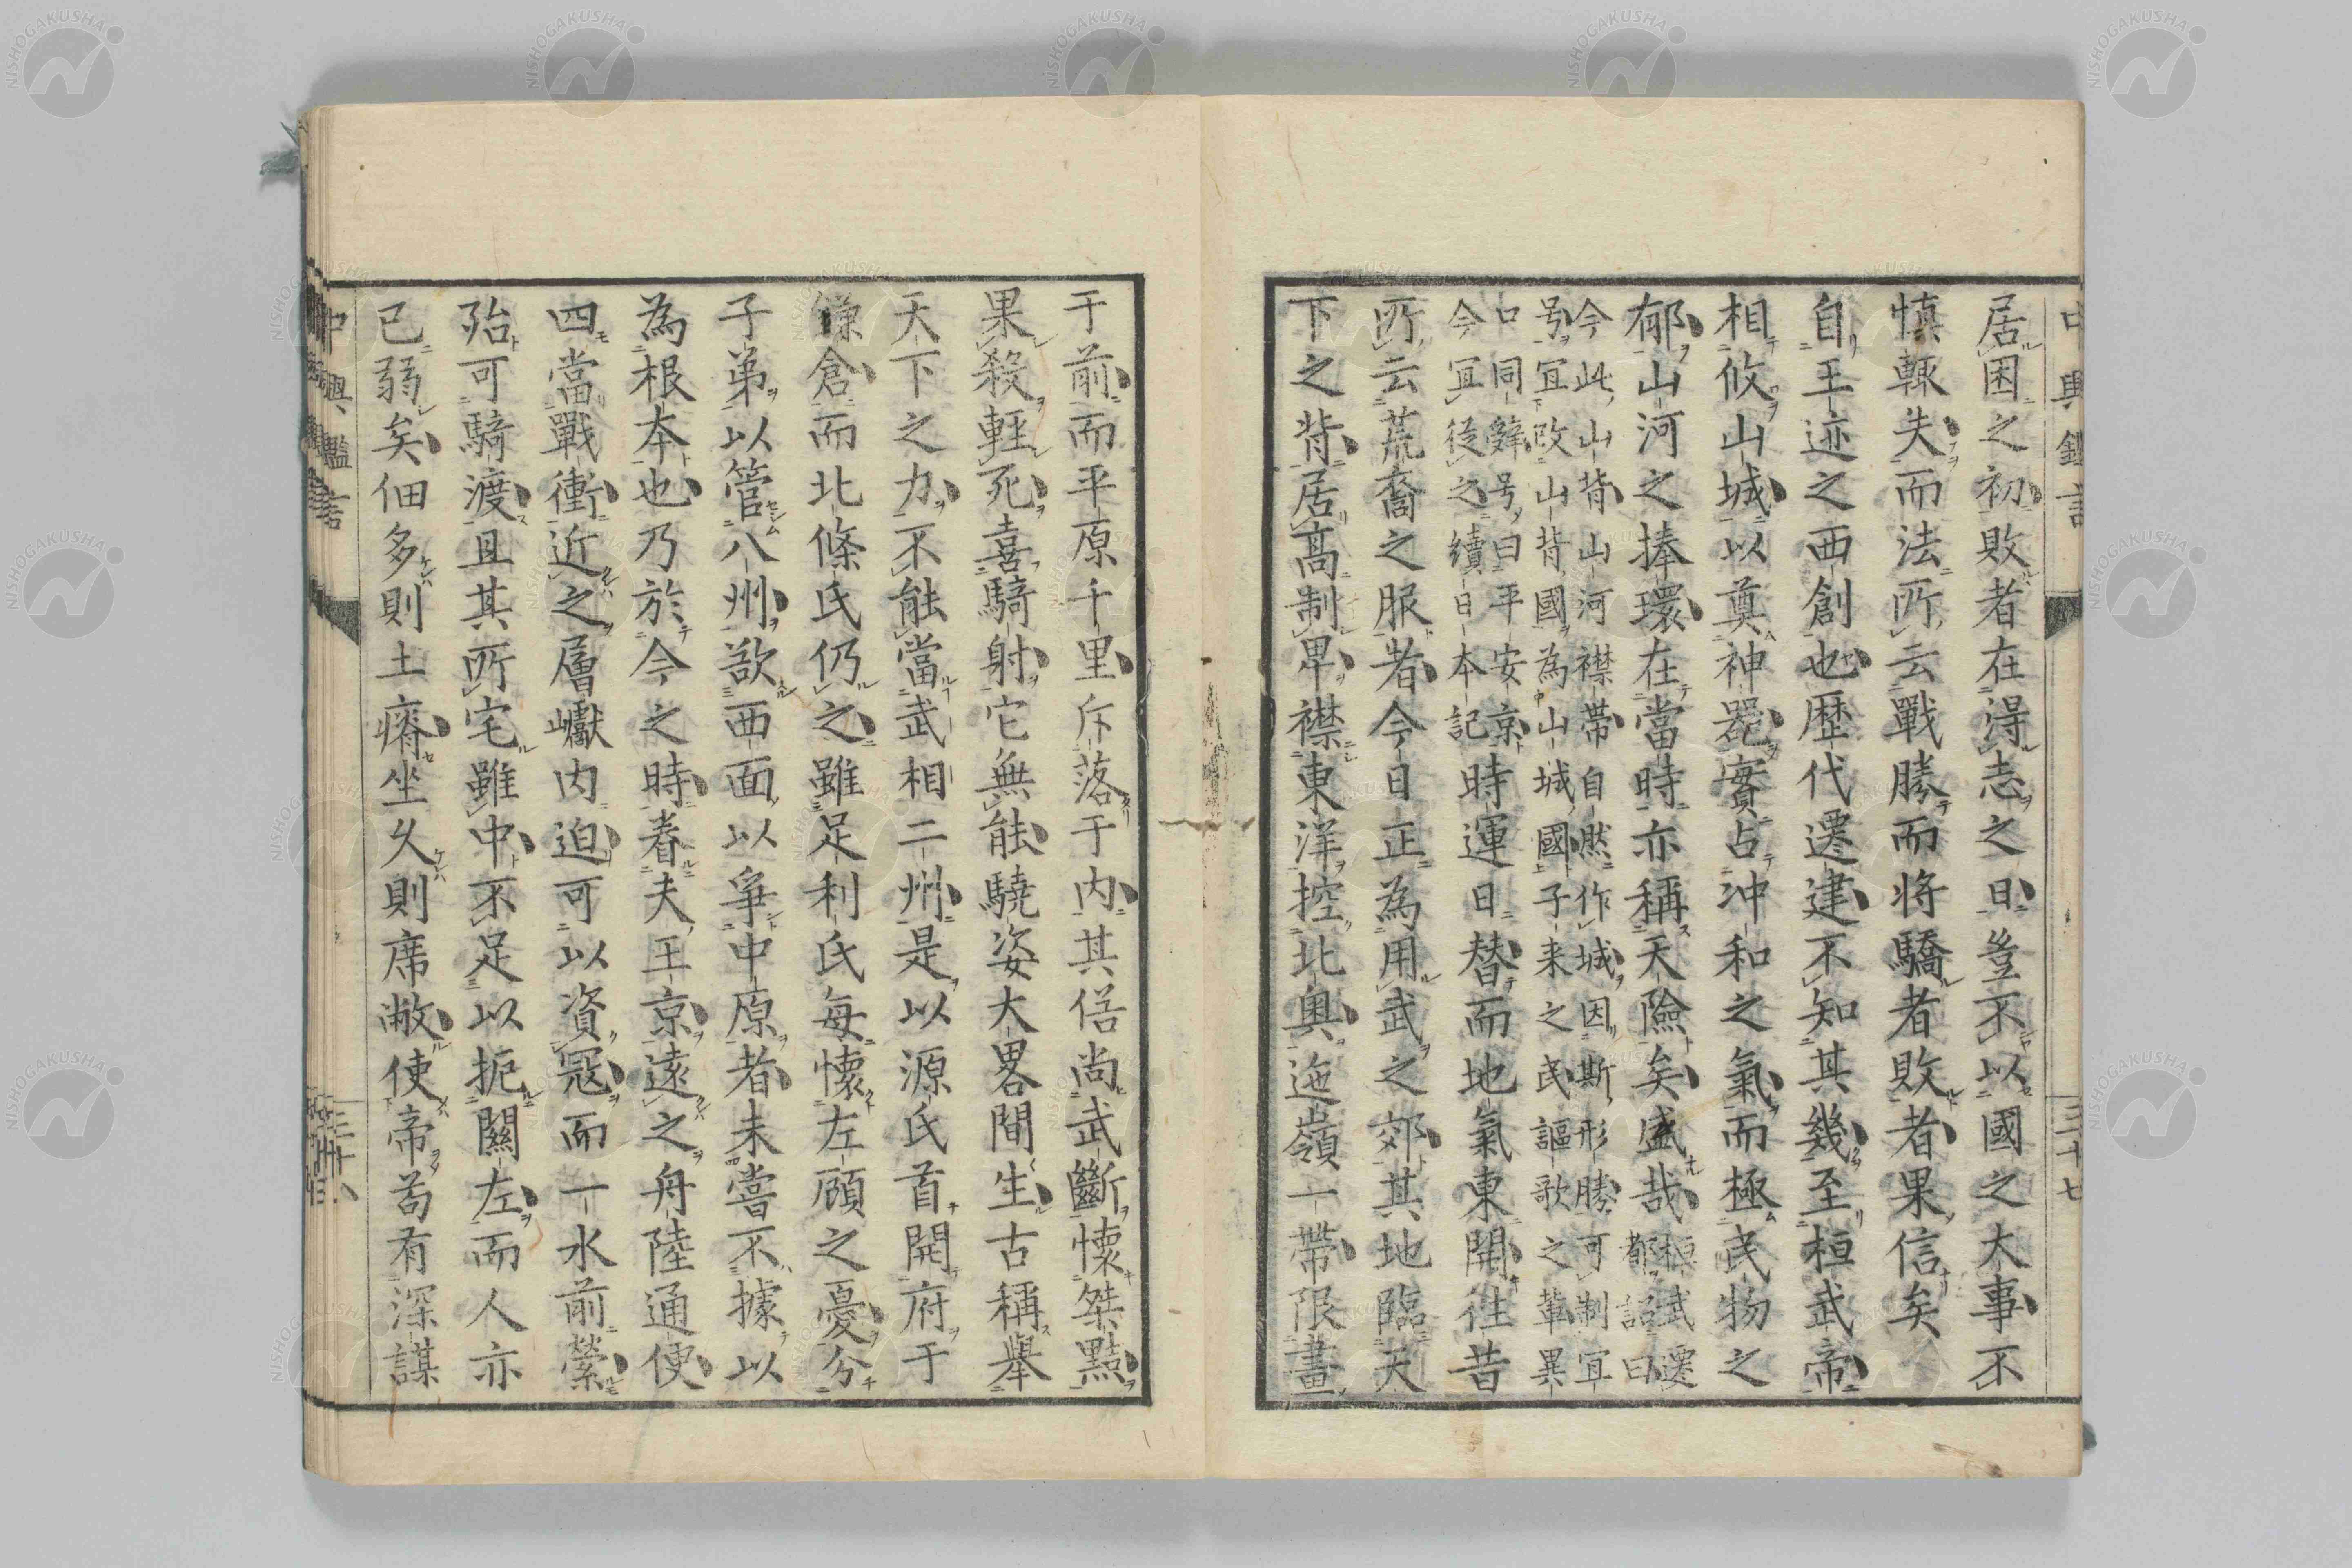 中興鑑言
三十七
居困之初敗者在得志之日豈不以國之大事不
慎輙失而法所云戰勝而将驕者敗者果信矣
自王迹之西創也歴代遷建不知其幾至桓武帝
相攸山城以奠神器實占沖和之氣而極民物之
郁山河之捧環在當時亦稱天險矣盛哉桓武遷
都詔曰
今此山背山河襟帯自然作城因斯形勝可制冝
号冝改山背國為山城國子来之民謳歌之輩異
口同辤号曰平安京
今冝従之續日本記時運日替而地氣東開徃昔
所云荒裔之服者今日正為用武之郊其地臨天
下之背居髙制卑襟東洋控北奥迤嶺一帯限畫
于前而平原千里斥落于内其俗尚武斷懷桀黠
果殺輕死喜騎射它無能驍姿大畧間生古稱舉
天下之力不能當武相二州是以源氏首開府于
鎌倉而北條氏仍之雖足利氏毎懷左顧之憂分
子弟以管八州欲西面以爭中原者未嘗不據以
為根本也乃於今之時眷夫王京遠之舟陸通便
四當戰衝近之層巘内迫可以資冦而一水前縈
殆可騎渡且其所宅雖中不足以扼關左而人亦
已弱矣佃多則土瘠坐久則席敝使帝苟有深謀
中興鑑言
三十八